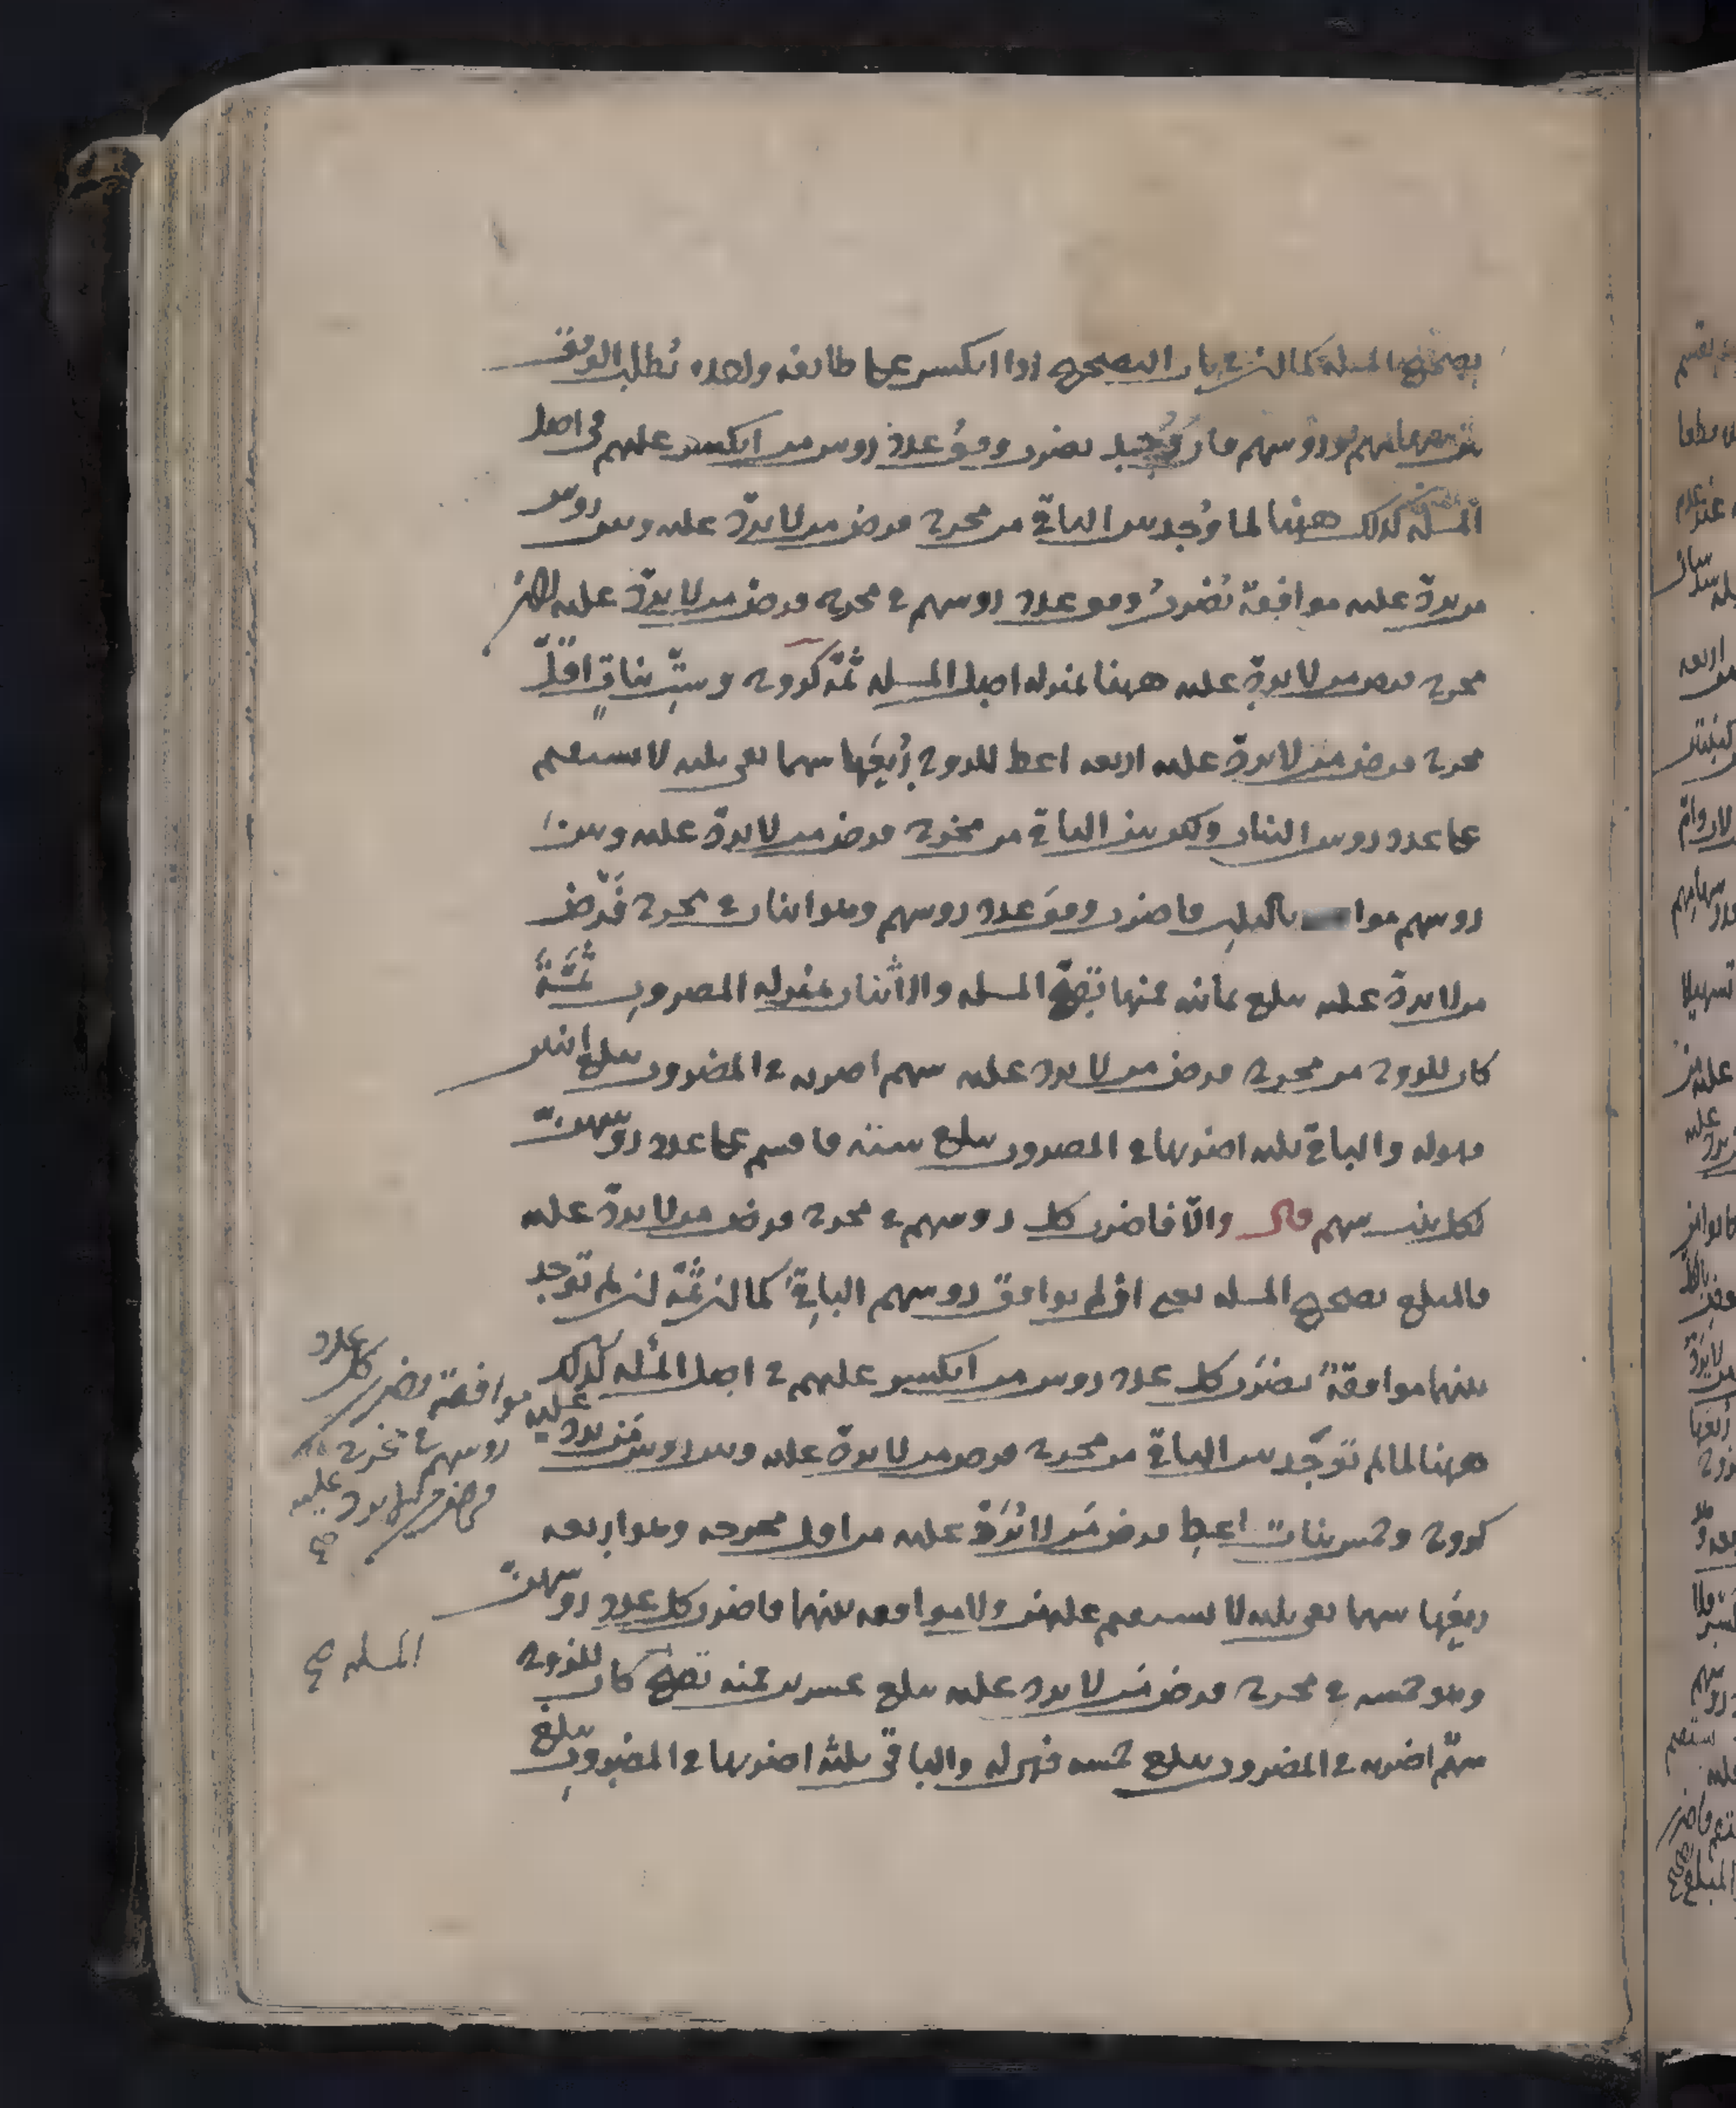 تصحيح المسله كما ان في باب التصحيح اذا انكسر على طائفة واحده تطلب الوفق
بين سهامهم ورؤسهم فان وجد يضرب وفق عدد روس من انكسر عليهم في اصل
المسله كذلك ههنا لما وجد بين الباقي من مخرج فرض من لا يرد عليه وبين روس
من يرد عليه موافقة تضرب وفق عدد روسهم في مخرج فرض من لا يرد عليه لان
مخرج فرض من لا يرد عليه ههنا بمنزله اصل المسله ثمة كزوج وست بنات اقل
مخرج فرض من لا يرد عليه اربعه اعط للزوج ربعها سهما بقي ثلثه لا يستقيم
على عدد روس البنات ولكن بين الباقي من مخرج فرض من لا يرد عليه وبين
روسهم بالثلث فاضرب وفق عدد روسهم وهو اثنان في مخرج فرض
من لا يرد عليه يبلغ ثمانيه فمنها تصح المسله والاثنان بمنزله المضروب ثمة
كان للزوج من مخرج فرض من لا يرد عليه سهم اضربه في المضروب يبلغ اثنين
فهو له والباقي ثلثه اضربها في المضروب يبلغ سته فاقسم على عدد روسهن
لكل بنت سهم قال والا فاضرب كل روسهم في مخرج فرض من لا يرد عليه
فالمبلغ تصحيح المسله يعني ان لم يوافق روسهم الباقي كما ان ثمة ان لم توجد
بينهما موافقة يضرب كل عدد روس من انكسر عليهم في اصل المسئله كذلك
ههنا لما لم توجد بين الباقي من مخرج فرض من لا يرد عليه وبين روس من يرد عليه
موافقة فضرب كل عدد
روسهم في مخرج
فرض من لا يرد عليه
صح
كزوج وخمس بنات اعط فرض من لا يرد عليه من اقل مخرجه وهو اربعه
ربعها سهما بقي ثلثه لا يستقيم عليهن ولا موافقه بينهما فاضرب كل عدد روسهن
وهو خمسه في مخرج فرض من لا يرد عليه يبلغ عشرين فمنه تصح كان للزوج
المسله صح
سهم اضربه في المضروب يبلغ خمسه فهو له والباقي ثلثه اضربها في المضروب يبلغ